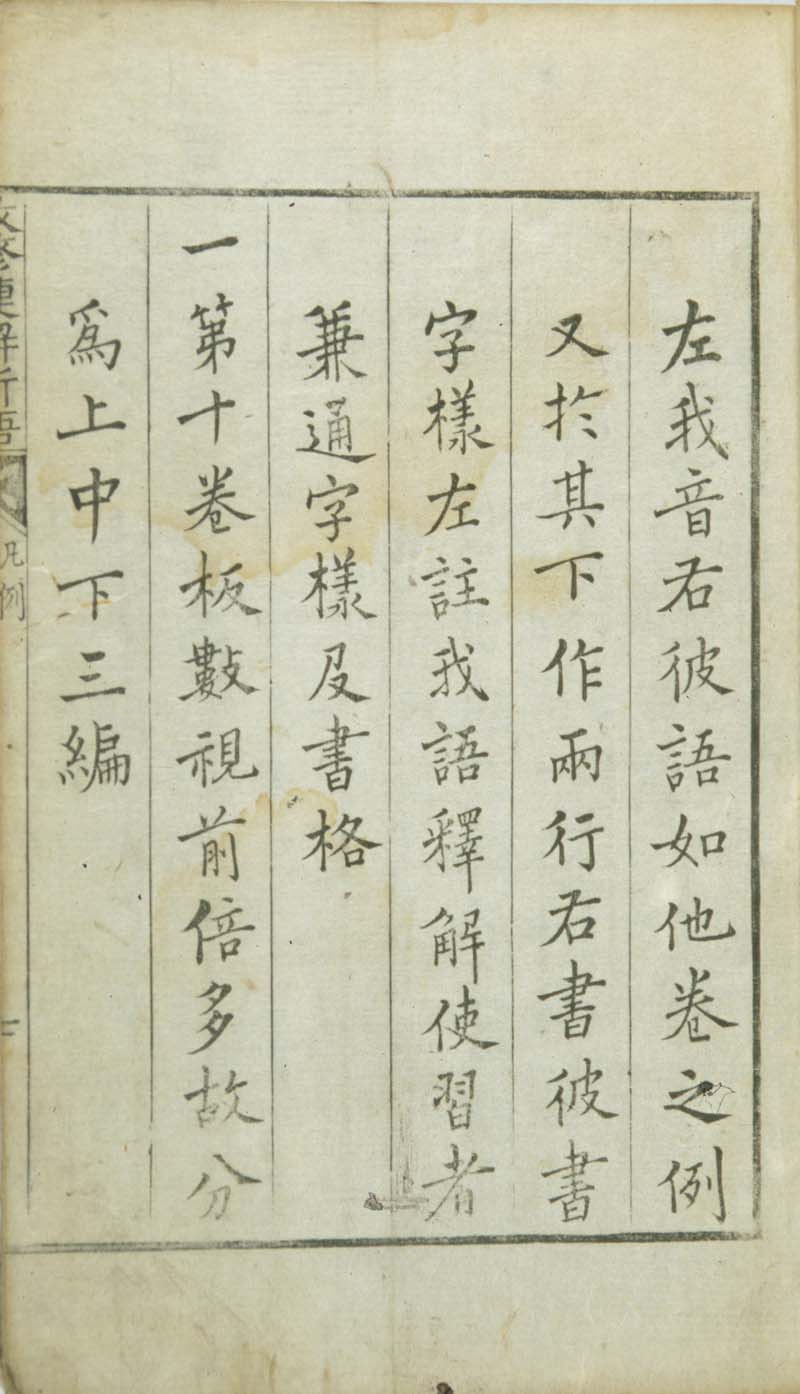 左我音右彼語如他卷之例
又於其下作兩行右書彼書
字樣左註我語釋解使習者
兼通字樣及書格
一第十卷板數視前倍多故分
爲上中下三編
改修捷解新語 凡例